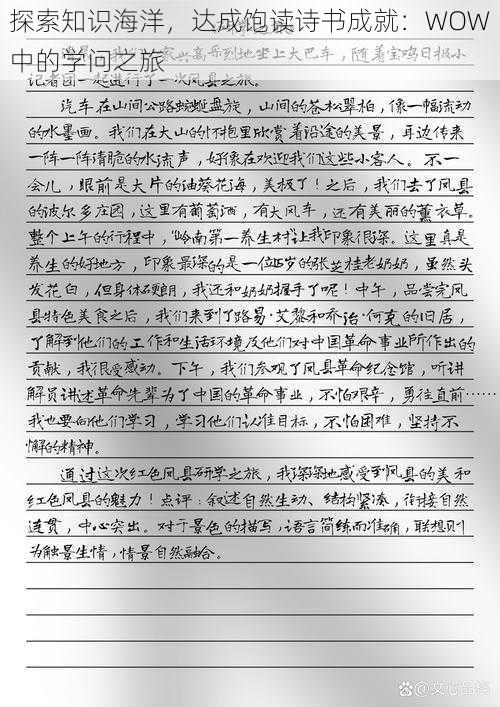 探索知识海洋，达成饱读诗书成就：WOW
中的学问之旅
兴高采烈地坐上大巴车，随着宝鸡日报小
记者团一起进行了一次凤县之旅。
汽车在山间公路蜿蜒盘旋，山间的苍松翠柏，像一幅流动
的水墨画。我们在大山的怀抱里欣赏着沿途的美景，耳边传来
一阵一阵清脆的水流声，好像在欢迎我们这些小客人。不一
会儿，眼前是大片的油葵花海，美极了！之后，我们去了凤县
的波尔多庄园，这里有葡萄酒，有大风车，还有美丽的薰衣草。
整个上午的行程中，"岭南第一养生村"让我印象很深。这里真是
养生的好地方，印象最深的是一位岁的张芝桂老奶奶，虽然头
发花白，但身体硬朗，我还和奶奶握手了呢！中午，品尝完凤
县特色美食之后，我们来到了路易·艾黎和乔治·何克的旧居，
了解到他们的工作和生活环境及他们对中国革命事业所作出的
贡献，我很受感动。下午，我们参观了凤县革命纪念馆，听讲
解员讲述革命先辈为了中国的革命事业，不怕艰辛，勇往直前……
我也要向他们学习，学习他们认准目标，不怕困难，坚持不
懈的精神。
通过这次红色凤县研学之旅，我深深地感受到凤县的美和
红色凤县的魅力！点评：叙述自然生动、结构紧凑，衔接自然
连贯，中心突出。对于景色的描写，语言简练而准确，联想则
为触景生情，情景自然融合。